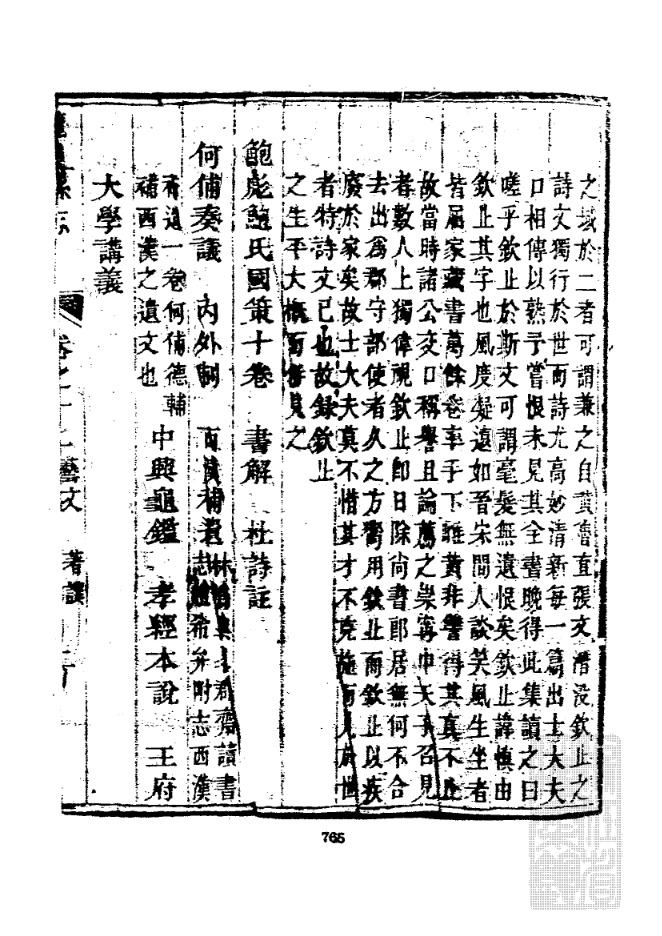 之域於二者可謂兼之自黃魯直張文潛沒欽止之
詩文獨行於世而詩尤高妙清新每一篇出士大夫
口相傳以熟予嘗恨未見其全書晚得此集讀之曰
嗟乎欽止於斯文可謂毫髮無遺恨矣欽止諱慎由
欽止其字也風度凝遠如晉宋間人談笑風生坐者
皆屈家藏書萬餘卷率手下雌黃非讐得其真不止
故當時諸公交口稱譽且論薦之崇寧中天子召見
者數人上獨偉視欽止即日除尚書郎居無何不合
去出為郡守部使者久之方嚮用欽止而欽止以疾
廢於家矣故士大夫莫不惜其才不克施而人於世
者特詩文已也故錄欽止
之生平大概而
鮑彪鮑氏國策十卷 書解 杜詩註
何俌奏議 內外制 西漢補遺
林 郡齋讀書
志 希弁附志西漢
補遺一卷何俌德輔
補西漢之遺文也
中興龜鑑 孝經本說 王府
大學講義
縣志 卷之十 藝文 著譔
765